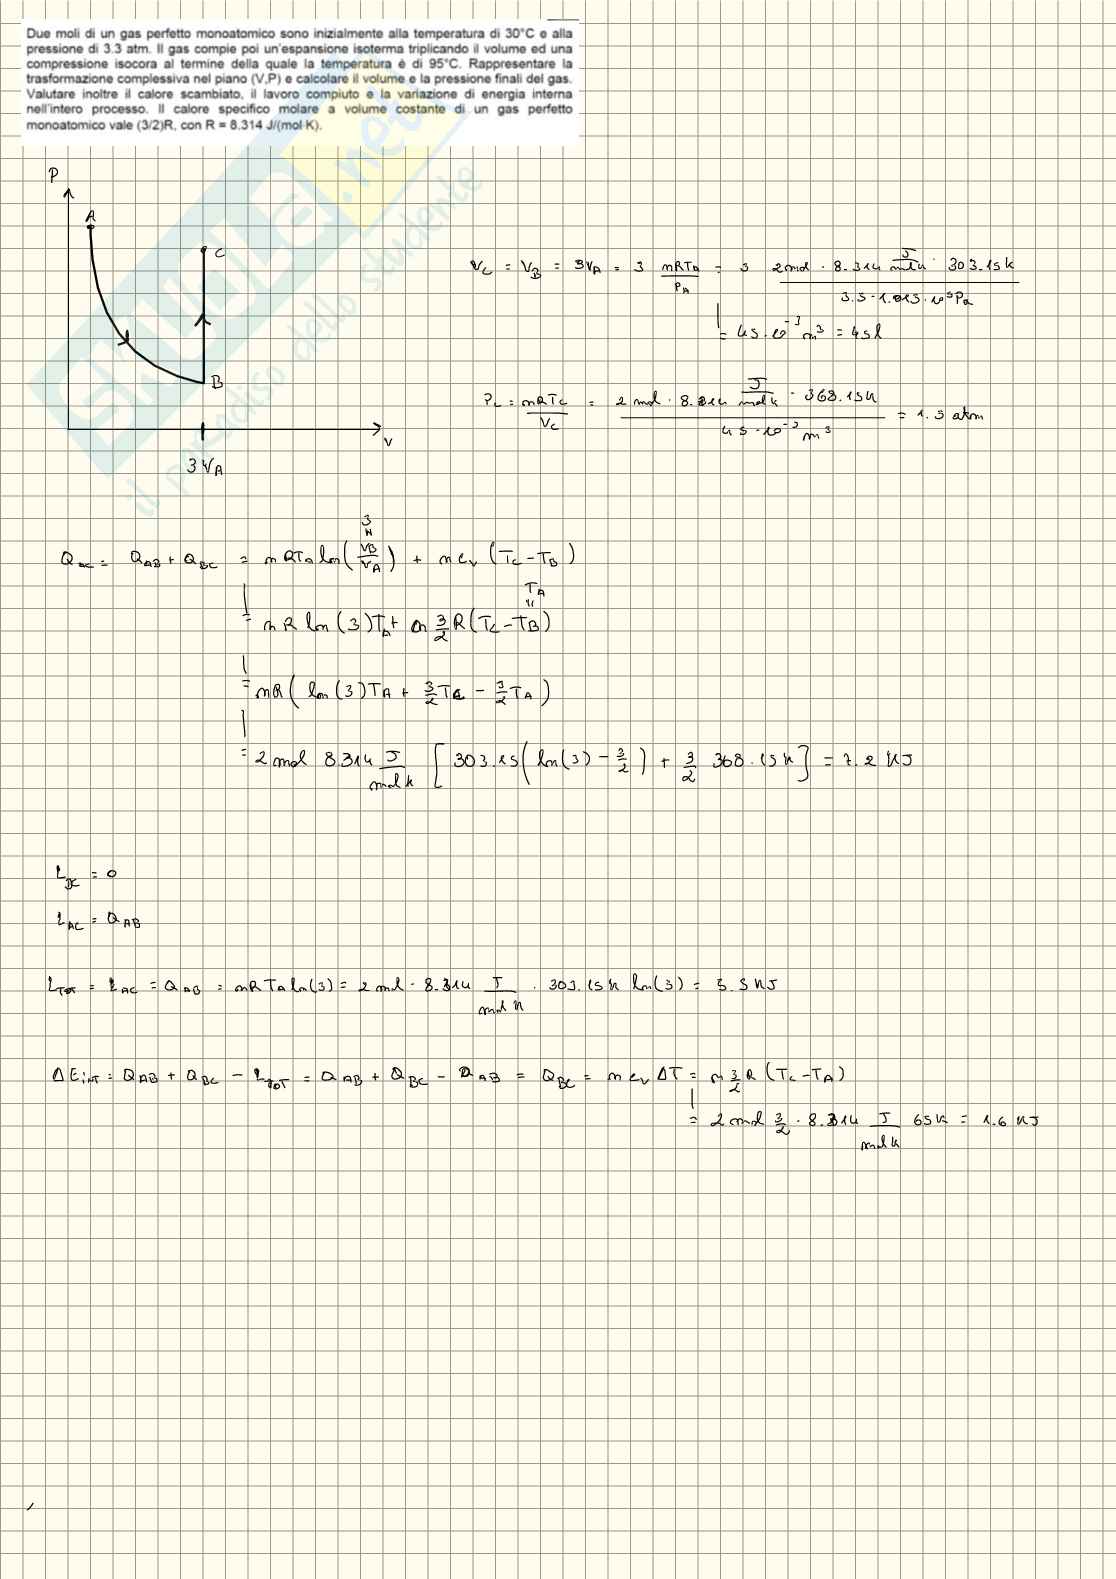 Due moli di un gas perfetto monoatomico sono inizialmente alla temperatura di 30°C e alla
pressione di 3.3 atm. Il gas compie poi un'espansione isoterma triplicando il volume ed una
compressione isocora al termine della quale la temperatura è di 95°C. Rappresentare la
trasformazione complessiva nel piano (V,P) e calcolare il volume e la pressione finali del gas.
Valutare inoltre il calore scambiato, il lavoro compiuto e la variazione di energia interna
nell'intero processo. Il calore specifico molare a volume costante di un gas perfetto
monoatomico vale (3/2)R, con R = 8.314 J/(mol·K).
SKUOLA.net
il paradiso dello studente
P
A
C
B
V
3VA
Vc = VB = 3VA = 3 nRTA/PA = 3 2mol · 8.314 J/molK · 303.15K / 3.3·1.013·10⁵Pa
= 45·10⁻³ m³ = 45l
Pc = nRTc/Vc = 2 mol · 8.314 J/molK · 368.15K / 45·10⁻³ m³ = 1.3 atm
QAC = QAB + QBC = nRTA ln(VB/VA) + ncv (Tc-TB)
3
TA
= nR ln(3)TA + n 3/2 R(Tc-TB)
= nR( ln(3)TA + 3/2 Tc - 3/2 TA )
= 2 mol 8.314 J/molK [ 303.15( ln(3) - 3/2 ) + 3/2 368.15K ] = 7.2 KJ
LBC = 0
LAC = QAB
LTOT = LAC = QAB = nRTA ln(3) = 2 mol · 8.314 J/molK · 303.15K ln(3) = 5.5 KJ
ΔEint = QAB + QBC - LTOT = QAB + QBC - QAB = QBC = ncv ΔT = n 3/2 R (Tc-TA)
= 2 mol 3/2 · 8.314 J/molK 65K = 1.6 KJ